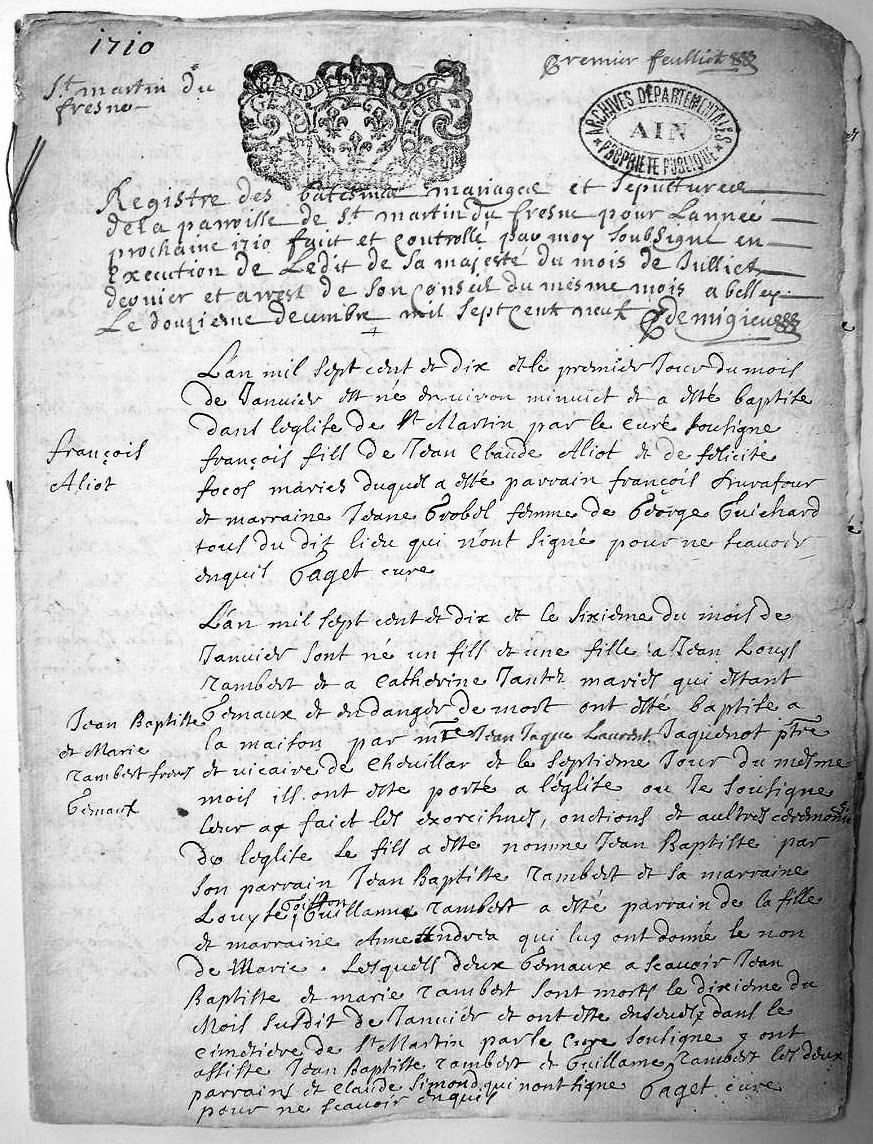 1710
St martin du
fresne
premier feulliet
GEN DE
ARCHIVES DÉPARTEMENTALES
AIN
PROPRIÉTÉ PUBLIQUE
Registre des batesmes mariages et sepultures
de la parroisse de St martin du fresne pour Lanneé
prochaine 1710 faict et controllé par moy soubsigné en
execution de Ledit de sa majesté du mois de Julliet
dernier et arrest de son conseil du mesme mois a belley
Le douzieme decembre mil sept cent neuf Demigieu
L'an mil sept cent et dix et le premier Jour du mois
de Janvier est né environ minuict et a esté baptise
dans leglise de St Martin par le curé sousigne
françois fils de Jean Claude Aliot et de felicité
focos mariés duquel a esté parrain françois
et marraine Jeane Grobel femme de George Guichard
tous du dit lieu qui n'ont signé pour ne scavoir
enquis Paget cure
françois
Aliot
L'an mil sept cent et dix et le sixieme du mois de
Janvier sont né un fils et une fille a Jean Louys
rambert et a Catherine Jantet mariés qui estant
Gemaux et en danger de mort ont esté baptise a
la maison par mre Jean Jaque Laurent Jaquenot ptre
et vicaire de Chevillar et le septieme Jour du mesme
mois ils ont esté porté a leglise ou Je sousigne
leur ay faict les exorcismes, onctions et aultres ceremonies
de leglise le fils a esté nomme Jean Baptiste par
son parrain Jean Baptiste rambert et sa marraine
Louyse Goiffon, Guillaume rambert a esté parrain de la fille
et marraine Anne Andrea qui luy ont donné le nom
de Marie. Lesquels deux Gemaux a scavoir Jean
Baptiste et marie rambert sont morts le dixieme du
Mois susdit de Janvier et ont esté ensevelz dans le
cimetiere de St Martin par le cure sousigne y ont
assisté Jean Baptiste rambert et Guillame rambert les deux
parrains et Claude Simond qui nont signe Paget cure
pour ne scavoir enquis
Jean Baptiste
et Marie
rambert freres
Gemaux